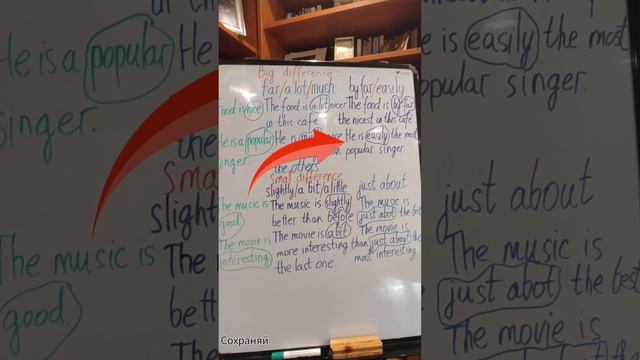 Big difference:
far/a lot/much by far/easily
Food is nice The food is a lot nicer The food is by far
in this cafe the nicest in this cafe
He is a popular He is He is easily the most
singer. popular singer.
the others
Smal difference
slightly/a bit/a little just about
The music is The music is slightly The music is
good better than before just abot the best
The movie is The movie is a bit The movie is
interesting more interesting than just about the
the last one. most interesting
Сохраняй